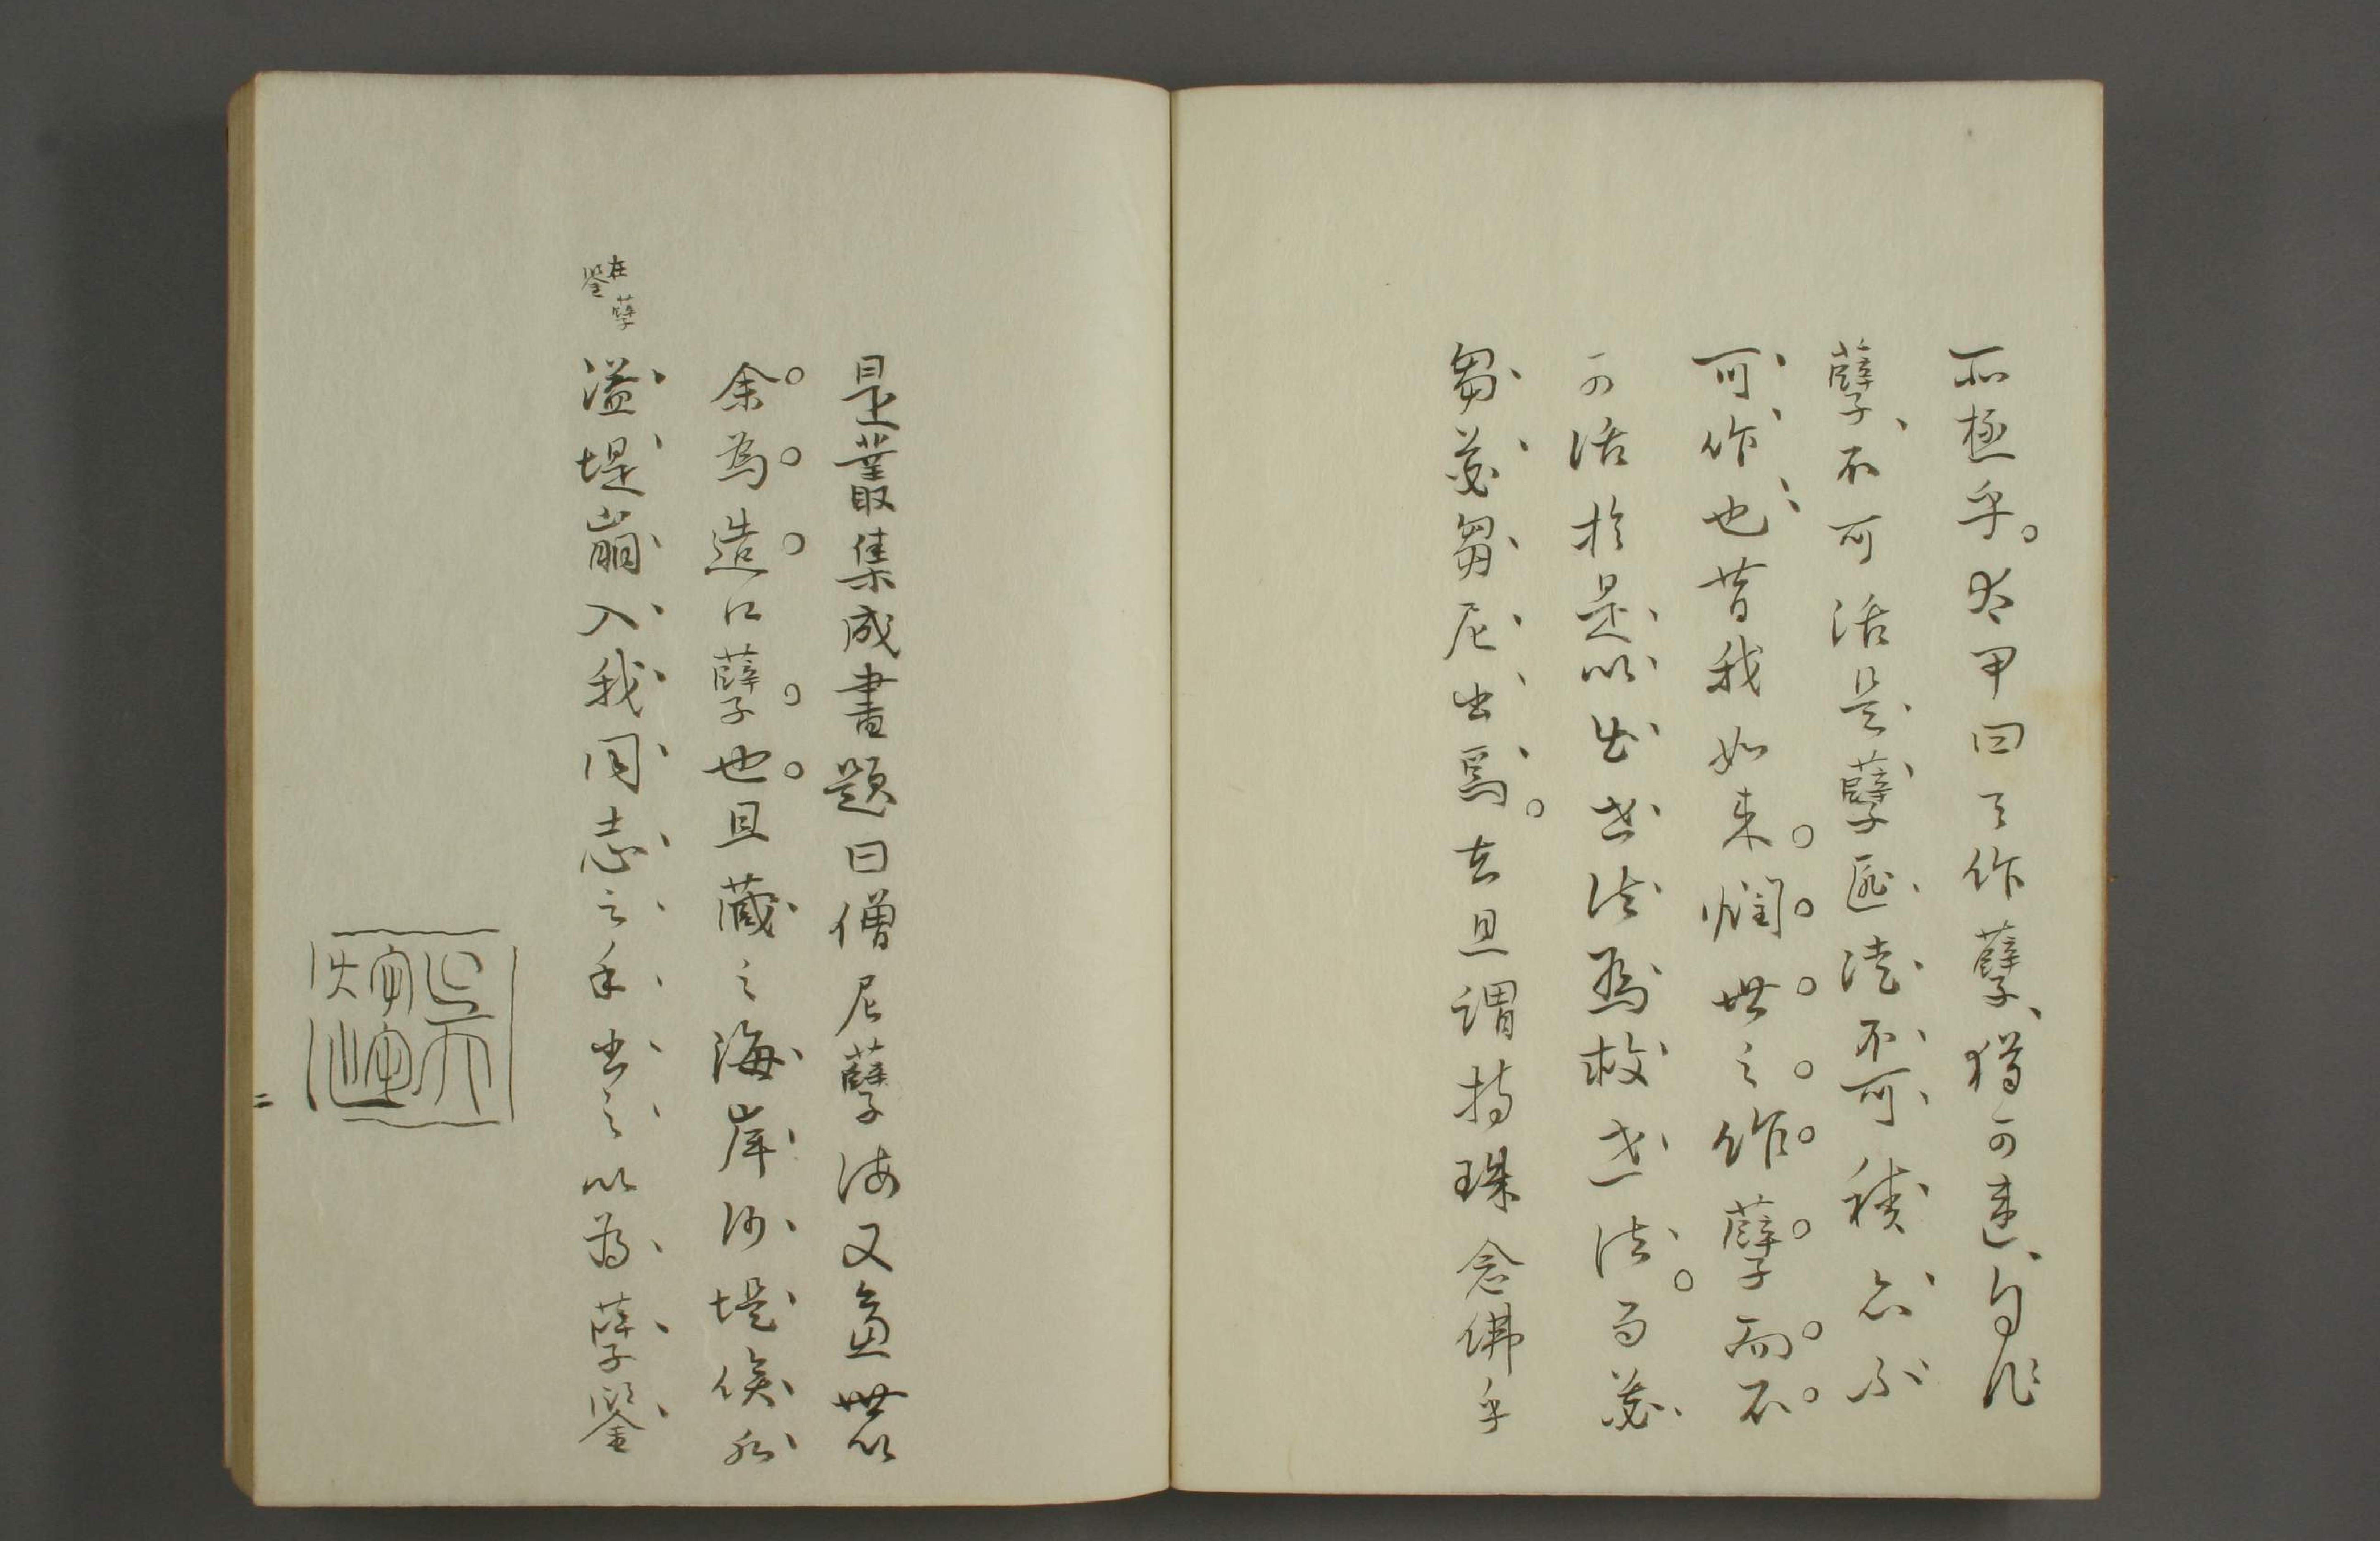 所極乎。太甲曰天作孽、猶可違、自作
孽、不可活是孽匪徒不可積亦不
可作也昔我如来憫世之作孽而不
可活於是以出世法為救世法。而苾
芻苾芻尼出焉。且謂持珠念佛乎
是叢集成書題曰僧尼孽海又世以
余為造口孽也且蔵之海岸沙堤俟水
在孽
鑒
溢堤崩入我同志之手出之以為孽鑒